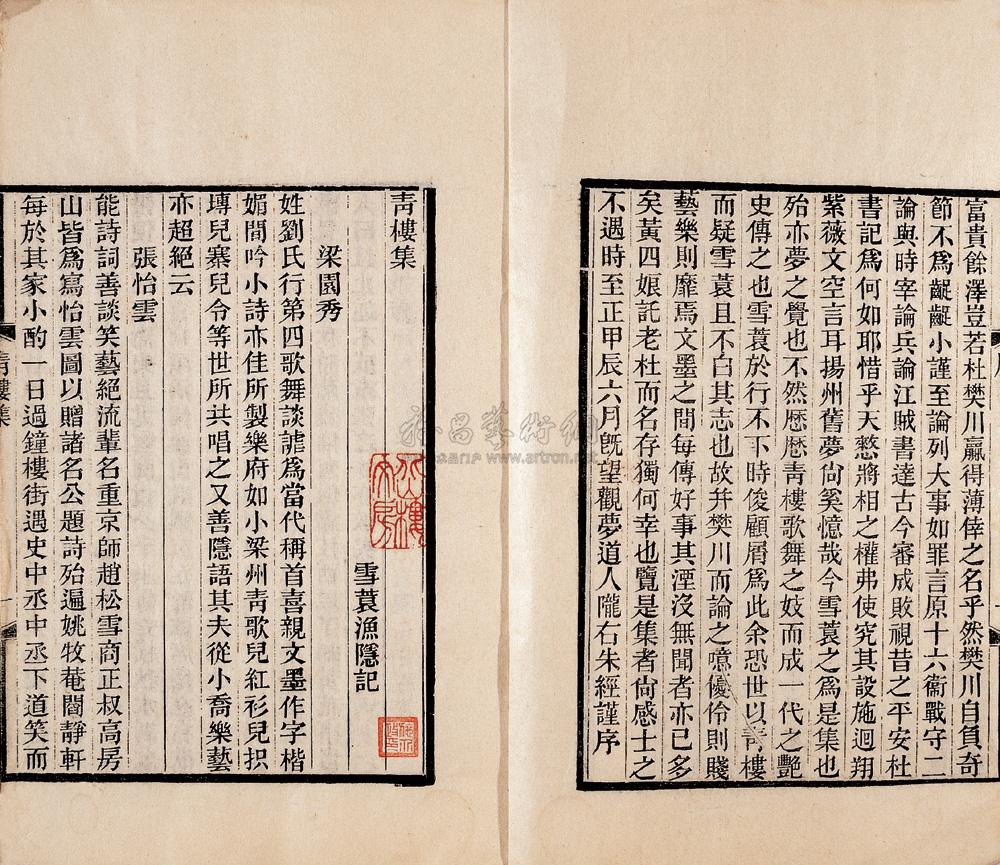 富貴餘澤豈若杜樊川贏得薄倖之名乎然樊川自負奇
節不為齪齪小謹至論列大事如罪言原十六衞戰守二
論與時宰論兵論江賊書達古今審成敗視昔之平安杜
書記為何如耶惜乎天憗將相之權弗使究其設施迴翔
紫薇文空言耳揚州舊夢尙奚憶哉今雪蓑之為是集也
殆亦夢之覺也不然歷歷青樓歌舞之妓而成一代之艷
史傳之也雪蓑於行不下時俊顧屑為此余恐世以青樓
而疑雪蓑且不白其志也故幷樊川而論之噫優伶則賤
藝樂則靡焉文墨之間每傳好事其湮沒無聞者亦已多
矣黃四娘託老杜而名存獨何幸也覽是集者尙感士之
不遇時至正甲辰六月旣望觀夢道人隴右朱經謹序
青樓集
雪蓑漁隱記
梁園秀
姓劉氏行第四歌舞談謔為當代稱首喜親文墨作字楷
媚間吟小詩亦佳所製樂府如小梁州青歌兒紅衫兒抧
塼兒寨兒令等世所共唱之又善隱語其夫從小喬樂藝
亦超絕云
張怡雲
能詩詞善談笑藝絕流輩名重京師趙松雪商正叔高房
山皆為寫怡雲圖以贈諸名公題詩殆遍姚牧菴閻靜軒
每於其家小酌一日過鐘樓街遇史中丞中丞下道笑而
青樓集
一
www.artron.net